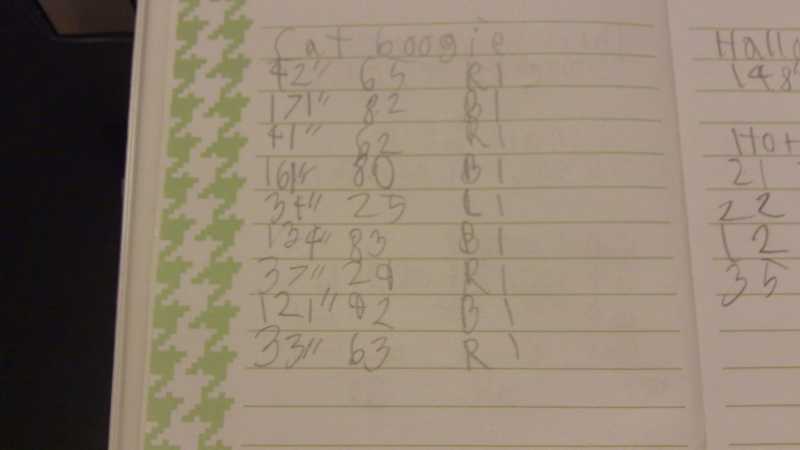 Cat boogie
42" 65 R1
171" 82 B1
41" 62 R1
161" 80 B1
34" 25 L1
134" 83 B1
37" 29 R1
121" 92 B1
33" 63 R1
148"
Hot
21
22
12
35